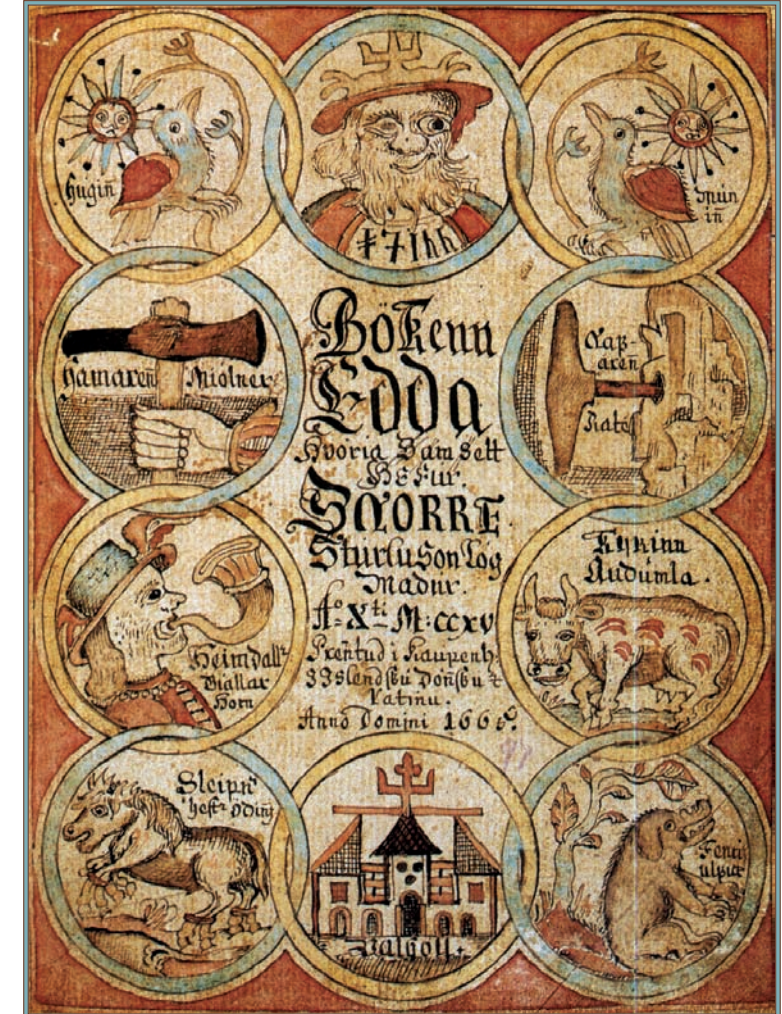 Huginn
Muninn
Hamaren Miolner
Naf-
aren
Rate
Bökenn
Edda
hvöria Samsett
Hefur
SNORRE
Sturluson Log
Madur.
Aº Xti M:ccxv
Prentud i Kaupenh
Islendsku Donsku &
Latinu.
Anno Domini 1665.
Heimdall
Giallar
Horn
Kyrinn
Audumla.
Sleipn
hestr Oding
Valholl
Fenris
ulfur